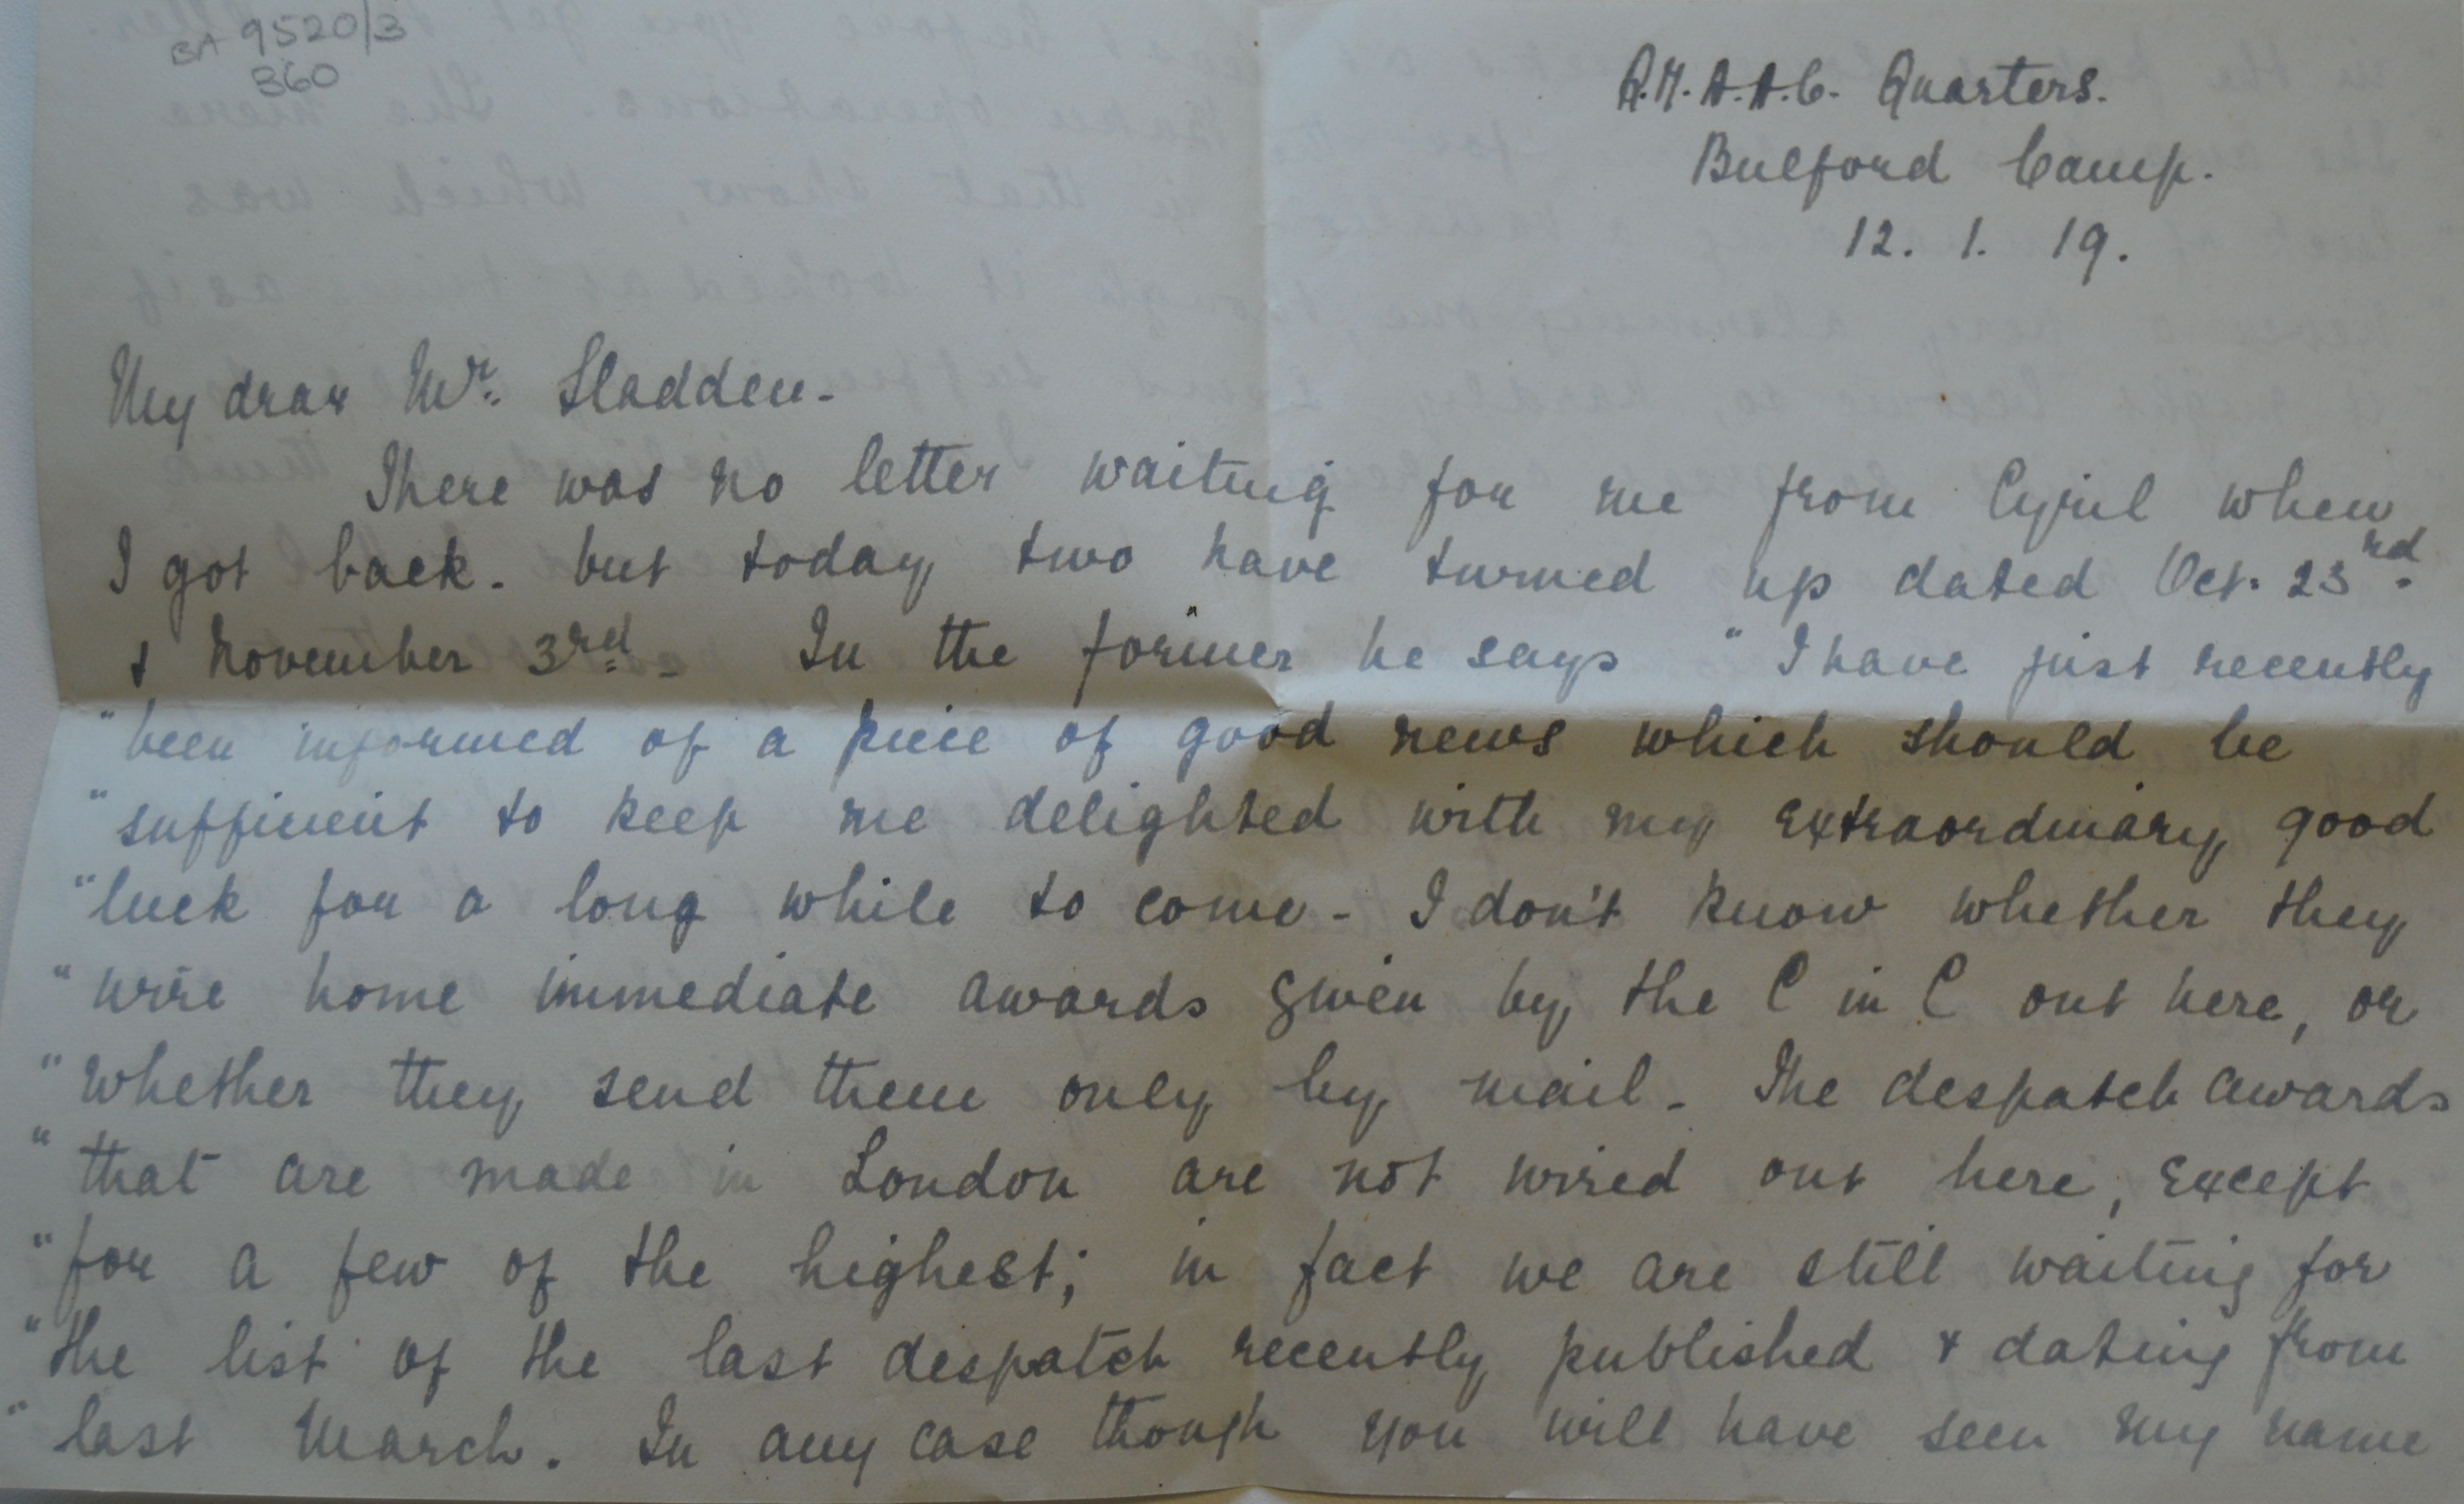 BA 9520/3
360
Q.M.A.A.C. Quarters.
Bulford Camp.
12. 1. 19.
My dear Mr. Sladden.
There was no letter waiting for me from Cyril when
I got back. but today two have turned up dated Oct. 23rd.
& November 3rd. In the former he says " I have just recently
" been informed of a piece of good news which should be
" sufficient to keep me delighted with my extraordinary good
" luck for a long while to come - I don't know whether they
" wire home immediate awards given by the C in C out here, or
" whether they send them only by mail. The despatch awards
" that are made in London are not wired out here, except
" for a few of the highest; in fact we are still waiting for
" the list of the last despatch recently published & dating from
" last March. In any case though you will have seen my name